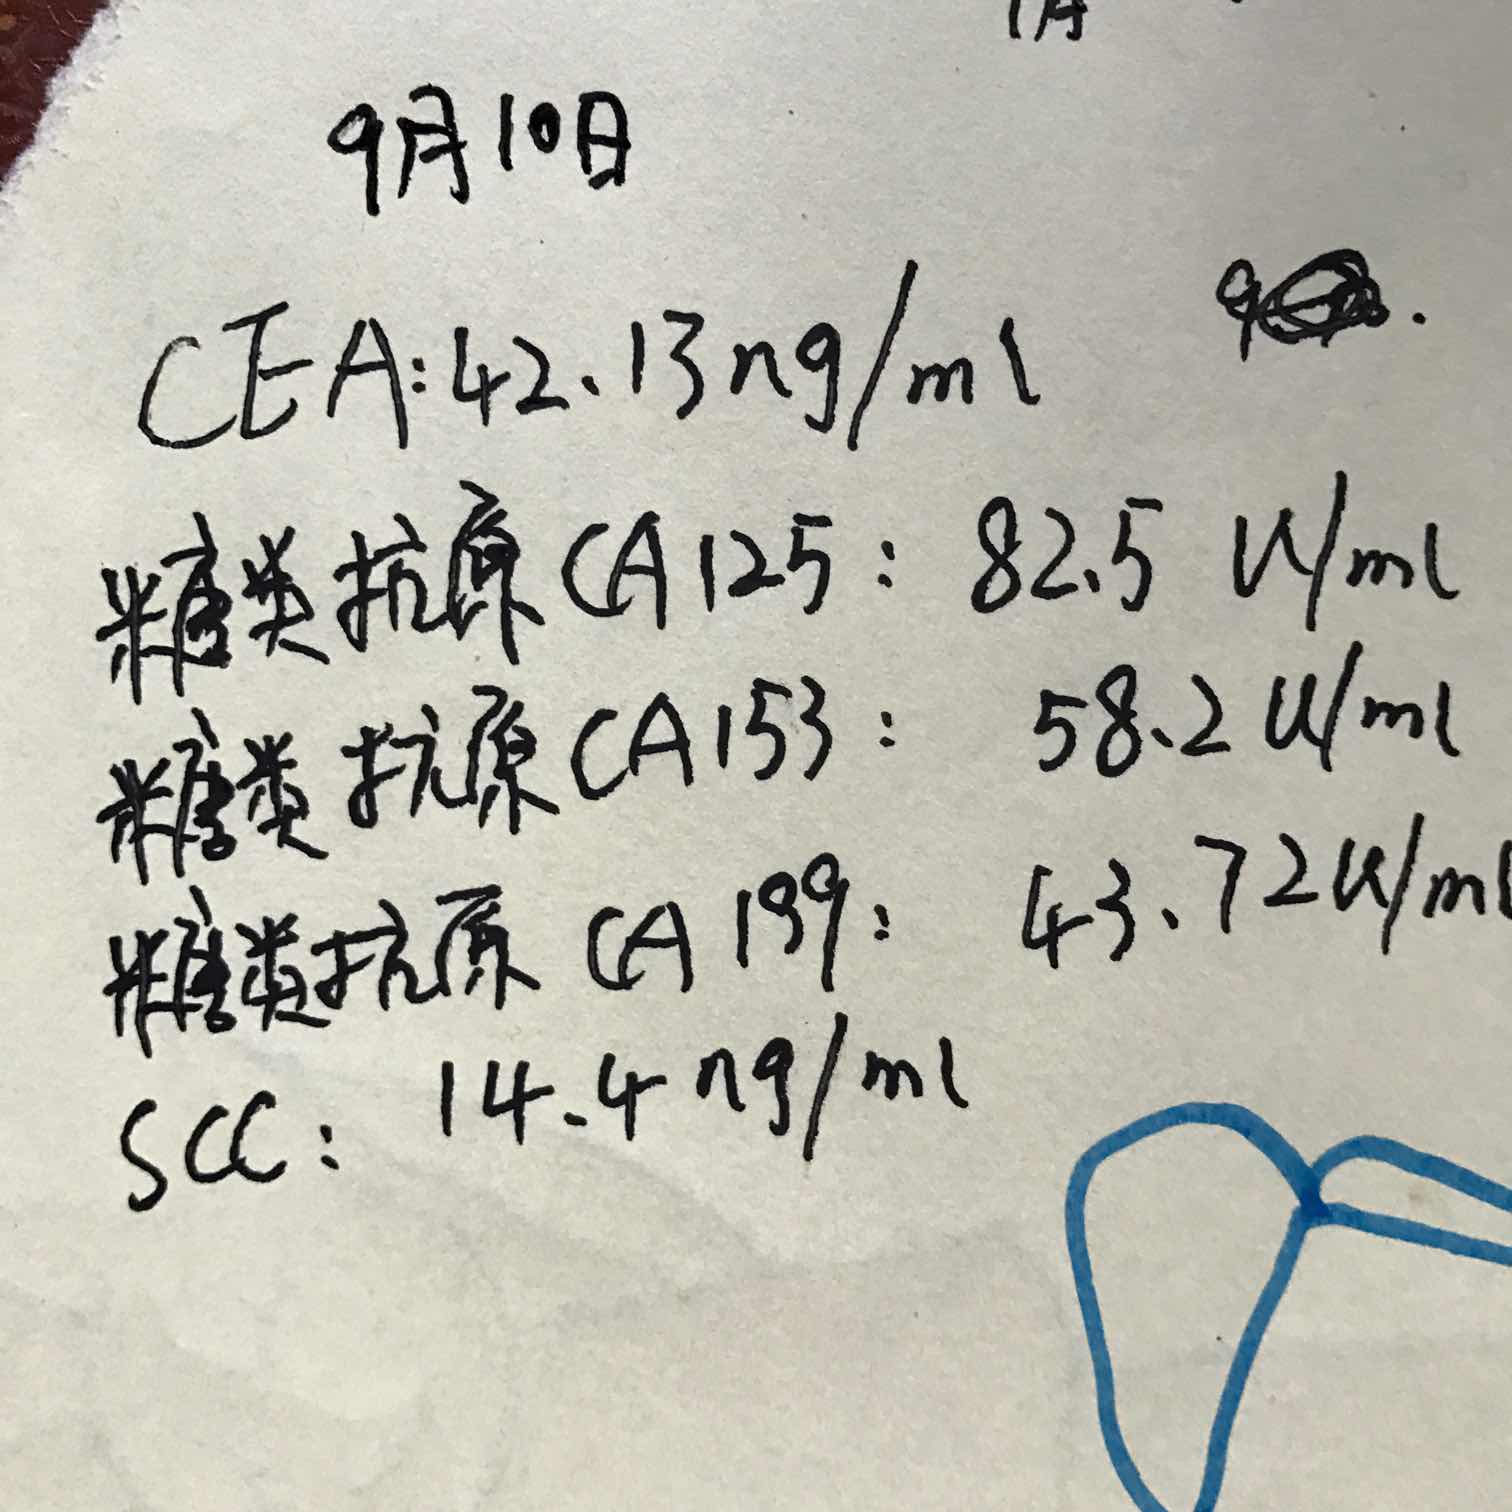 9月10日
CEA:42.13ng/ml
糖类抗原CA125: 82.5 U/ml
糖类抗原CA153: 58.2 U/ml
糖类抗原 CA 199: 43.72U/ml
SCC: 14.4 ng/ml